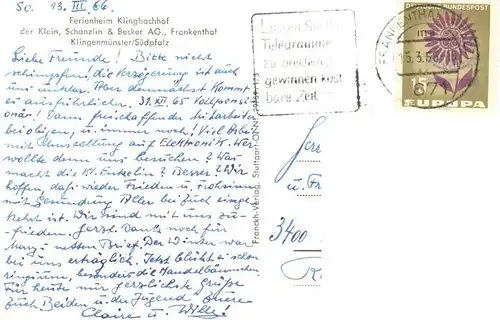 So. 13. III. 66.
Ferienheim Klingbachhof
der Klein, Schanzlin & Becker AG., Frankenthal
Klingenmünster/Südpfalz
Liebe Freunde! Bitte nicht
schimpfen, die Verzögerung ist auch
uns unklar. Nun demnächst kommt
es ausführlicher. 31. XII. 65 Vollpensio-
när! Dann freischaffender Mitarbeiter
u. immer noch! Viel Arbeit
mit Umstellung auf Elektronik. Wer
wollte denn uns besuchen? Was
macht die kl. Enkelin? Besser? Wir
hoffen, daß wieder Frieden u. Frohsinn
mit Gesundung Aller bei Euch einge-
kehrt ist. Wir sind mit uns zu-
frieden. Herzl. Dank noch für
netten Brief. Der Winter war
bei uns erträglich. Jetzt blüht es schon
ringsum, besonders die Mandelbäumchen.
Für heute nur herzlichste Grüße
Euch Beiden u. der Jugend Eure
Claire u. Willi!
Franckh-Verlag, Stuttgart-O
Lassen Sie Ihre
Telegramme
zu
gewinnen kost
bare Zeit
FRANKENTHAL
13.3.66
671
DEUTSCHE BUNDESPOST
15
EUROPA
u. Fr
3400